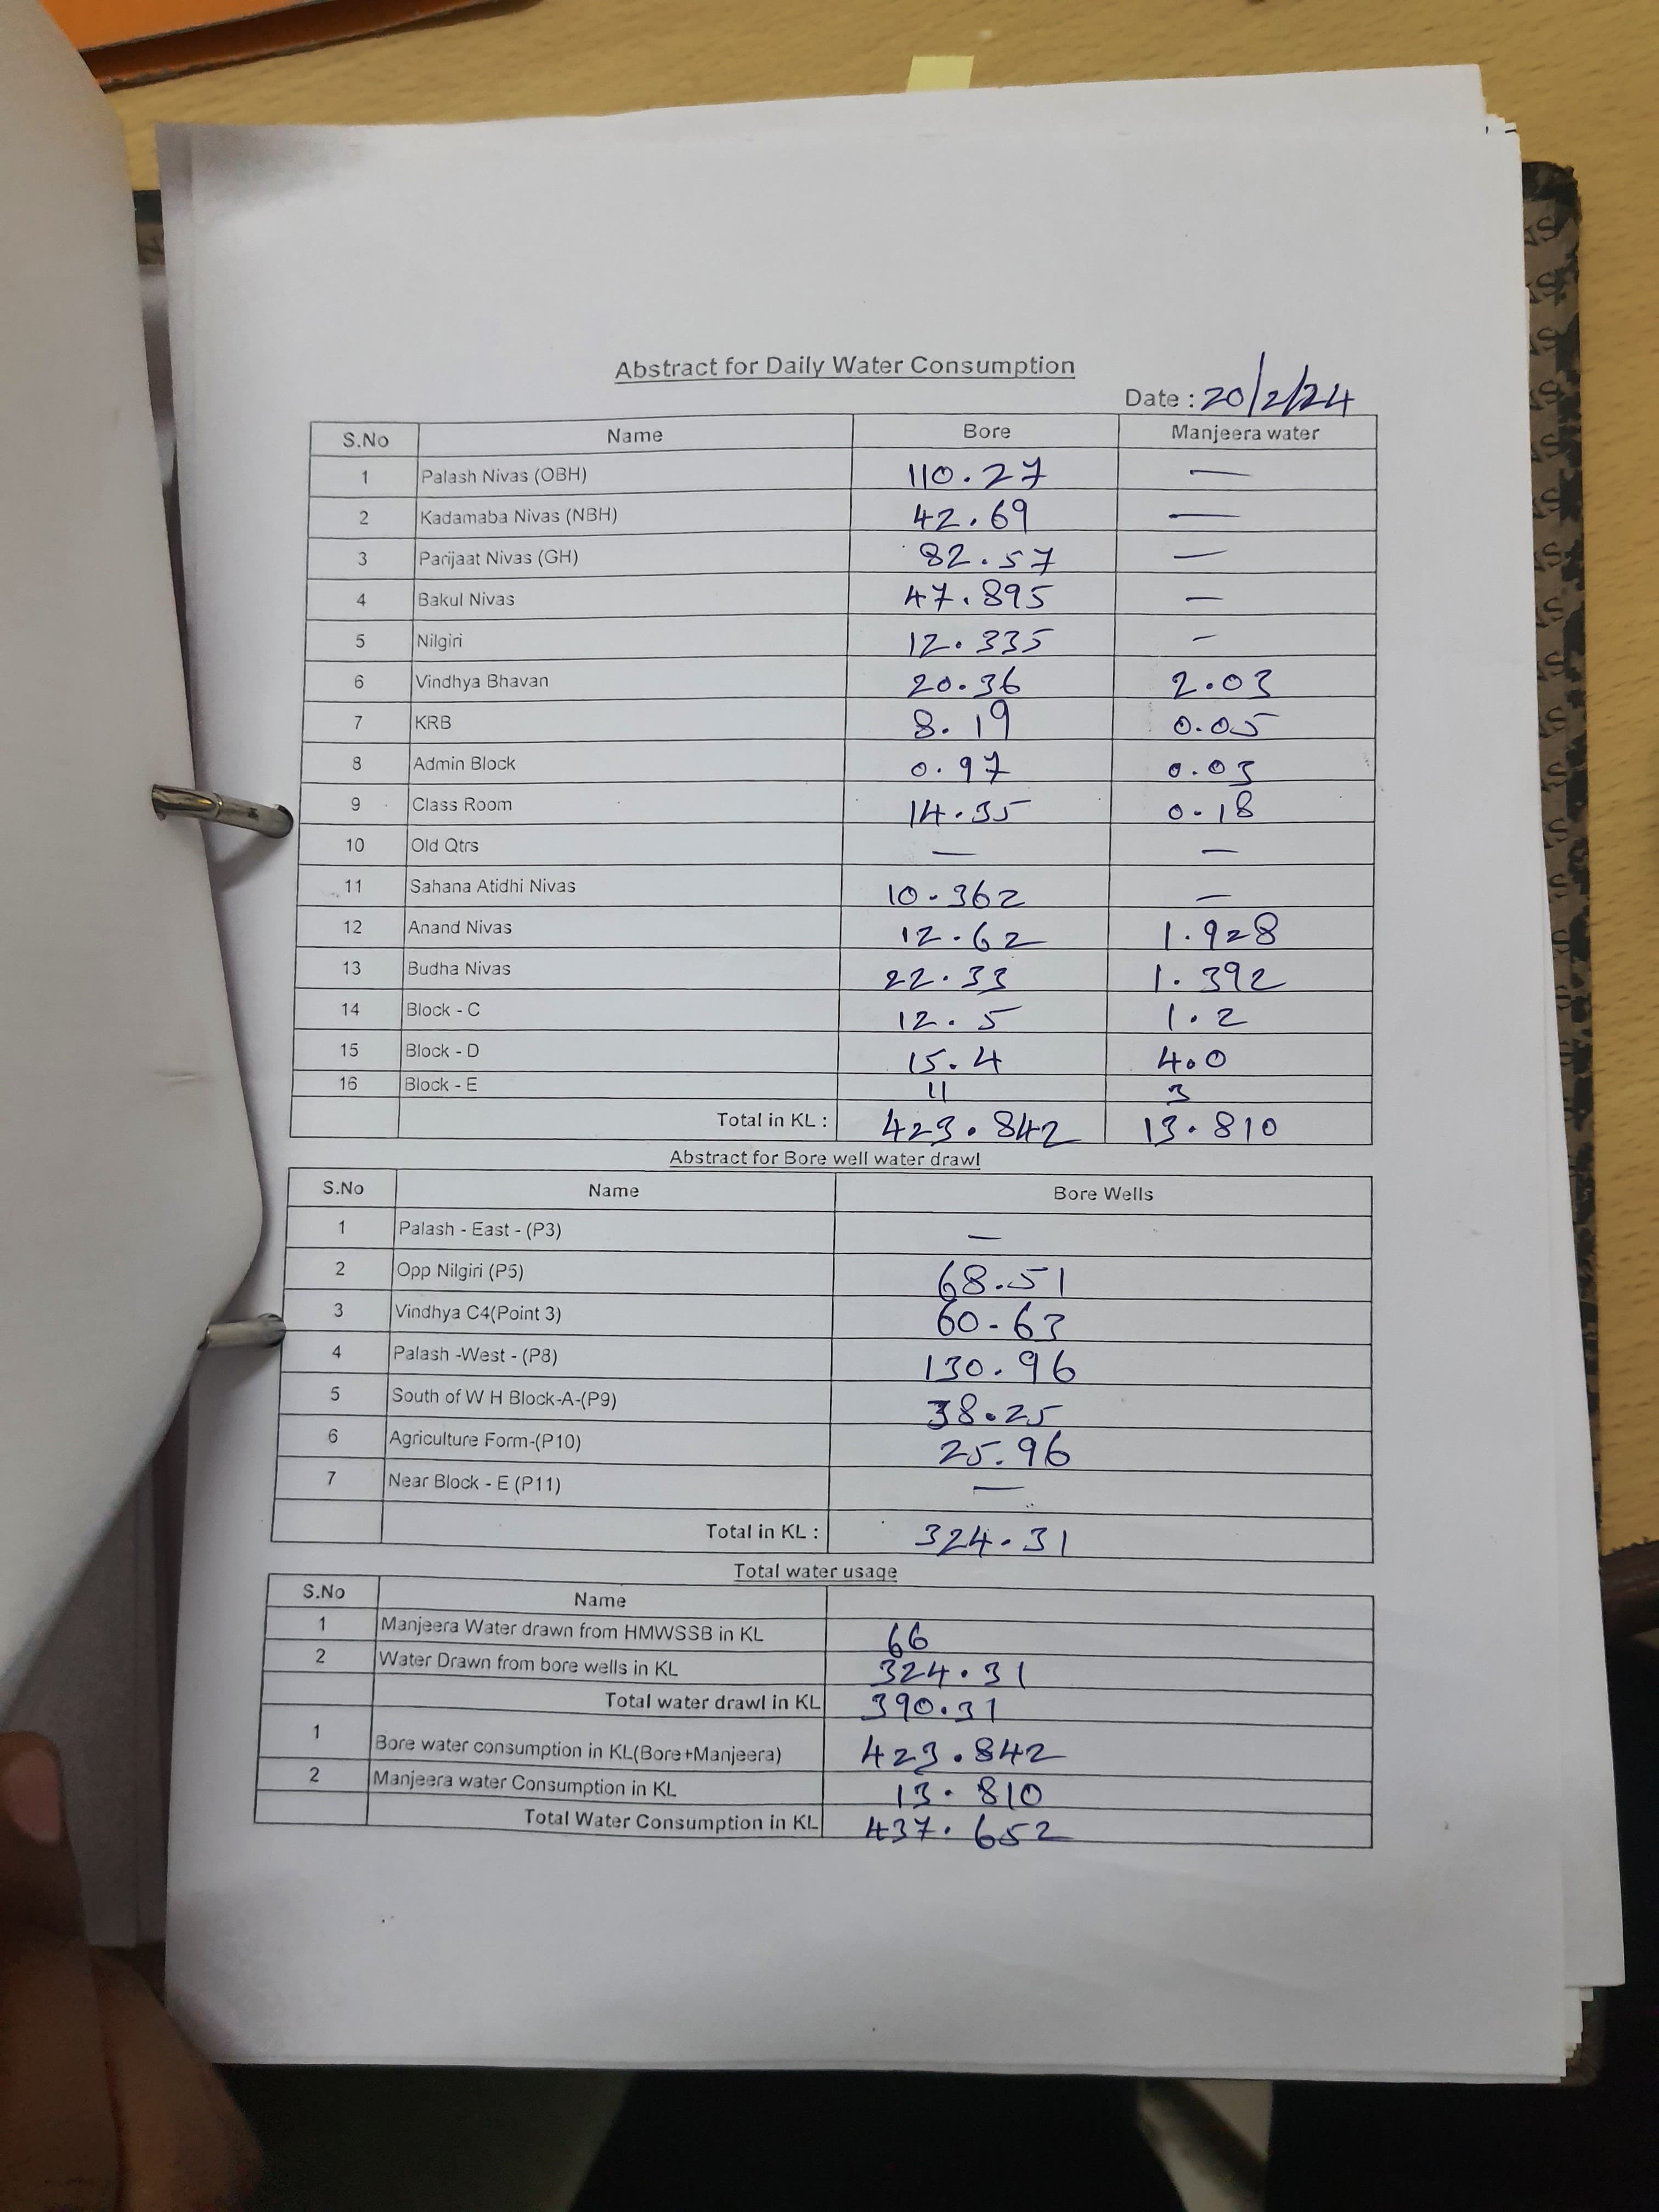 Abstract for Daily Water Consumption
Date : 20/2/24
S.No Name Bore Manjeera water
1 Palash Nivas (OBH) 110.27 —
2 Kadamaba Nivas (NBH) 42.69 —
3 Parijaat Nivas (GH) 82.57 —
4 Bakul Nivas 47.895 —
5 Nilgiri 12.335 —
6 Vindhya Bhavan 20.36 2.03
7 KRB 8.19 0.05
8 Admin Block 0.97 0.03
9 Class Room 14.35 0.18
10 Old Qtrs — —
11 Sahana Atidhi Nivas 10.362 —
12 Anand Nivas 12.62 1.928
13 Budha Nivas 22.33 1.392
14 Block - C 12.5 1.2
15 Block - D 15.4 4.0
16 Block - E 11 3
Total in KL : 423.842 13.810
Abstract for Bore well water drawl
S.No Name Bore Wells
1 Palash - East - (P3) —
2 Opp Nilgiri (P5) 68.51
3 Vindhya C4(Point 3) 60.63
4 Palash -West - (P8) 130.96
5 South of W H Block-A-(P9) 38.25
6 Agriculture Form-(P10) 25.96
7 Near Block - E (P11) —
Total in KL : 324.31
Total water usage
S.No Name
1 Manjeera Water drawn from HMWSSB in KL 66
2 Water Drawn from bore wells in KL 324.31
Total water drawl in KL 390.31
1 Bore water consumption in KL(Bore+Manjeera) 423.842
2 Manjeera water Consumption in KL 13.810
Total Water Consumption in KL 437.652